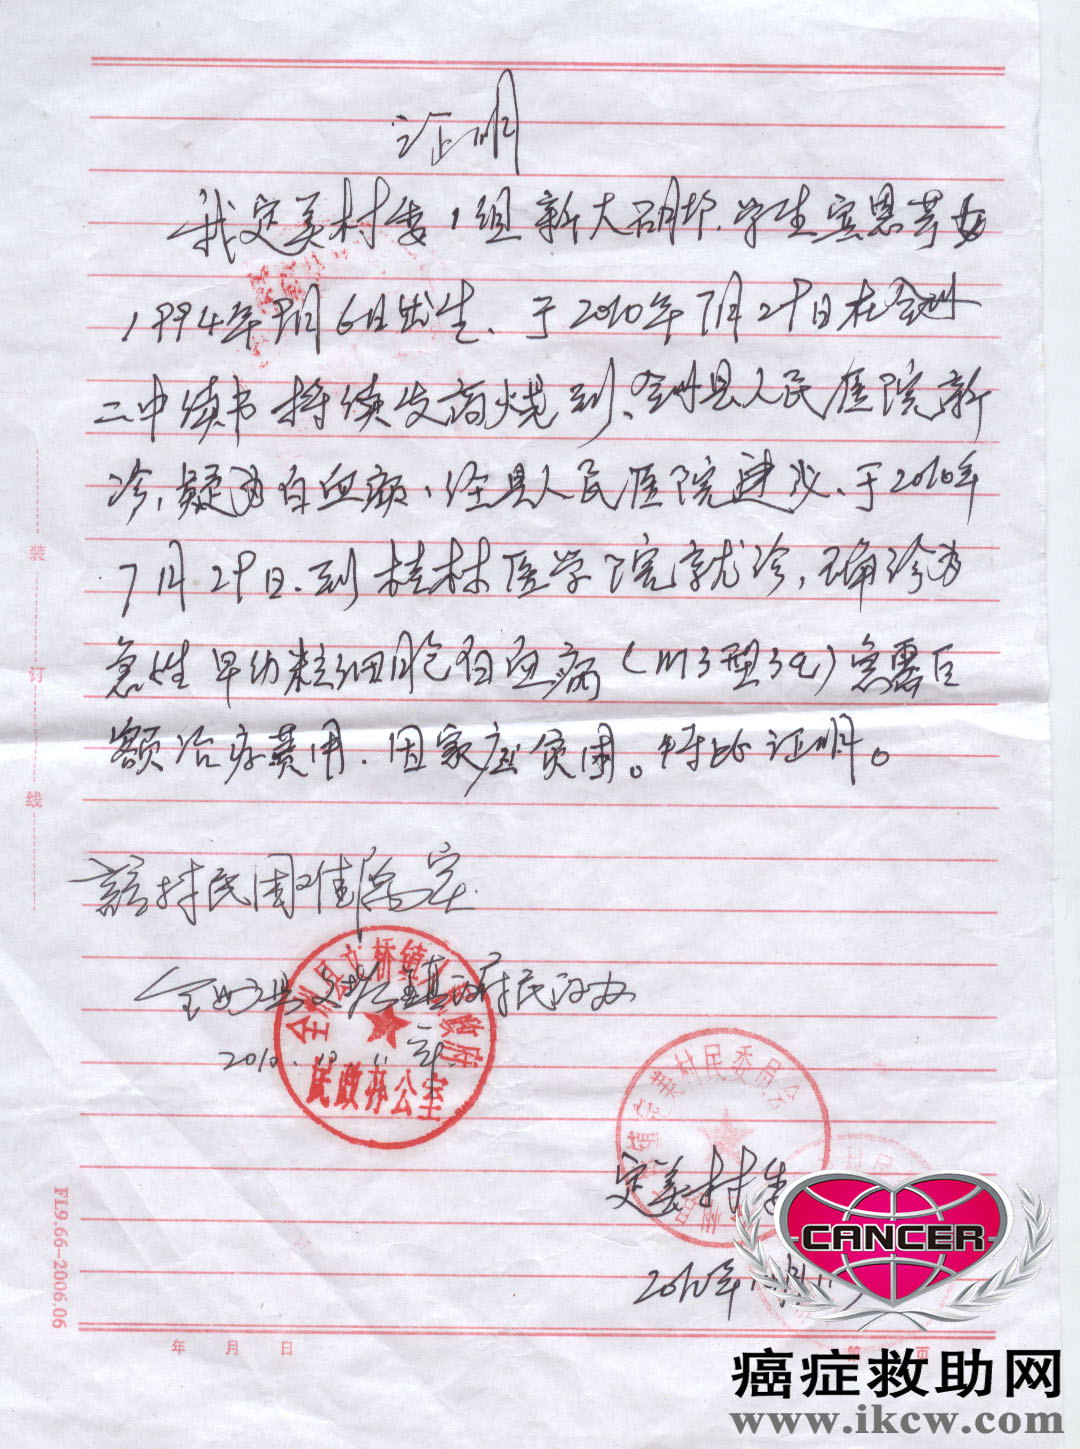 证明
我定美村委1组新大 邦.学生宾恩 女
1994年 月6日出生、于2010年7月29日在全州
二中续书持续发 烧到、全州县人民医院新
诊,疑为白血 、经县人民医院建议、于2010年
7月29日.到桂林医学院就诊,确诊为
急性早幼粒细胞白血病(M3型3 )急需巨
额治疗费用.因家庭贫困。特此证明。
该村民困难属实.
全州县文桥镇政府民政办
2010.
全州县文桥镇人民政府
民政办公室
村民委员会
定美村委
2010年
装
订
线
FL9.66-2006.06
年 月 日
第 页
CANCER
癌症救助网
www.ikcw.com